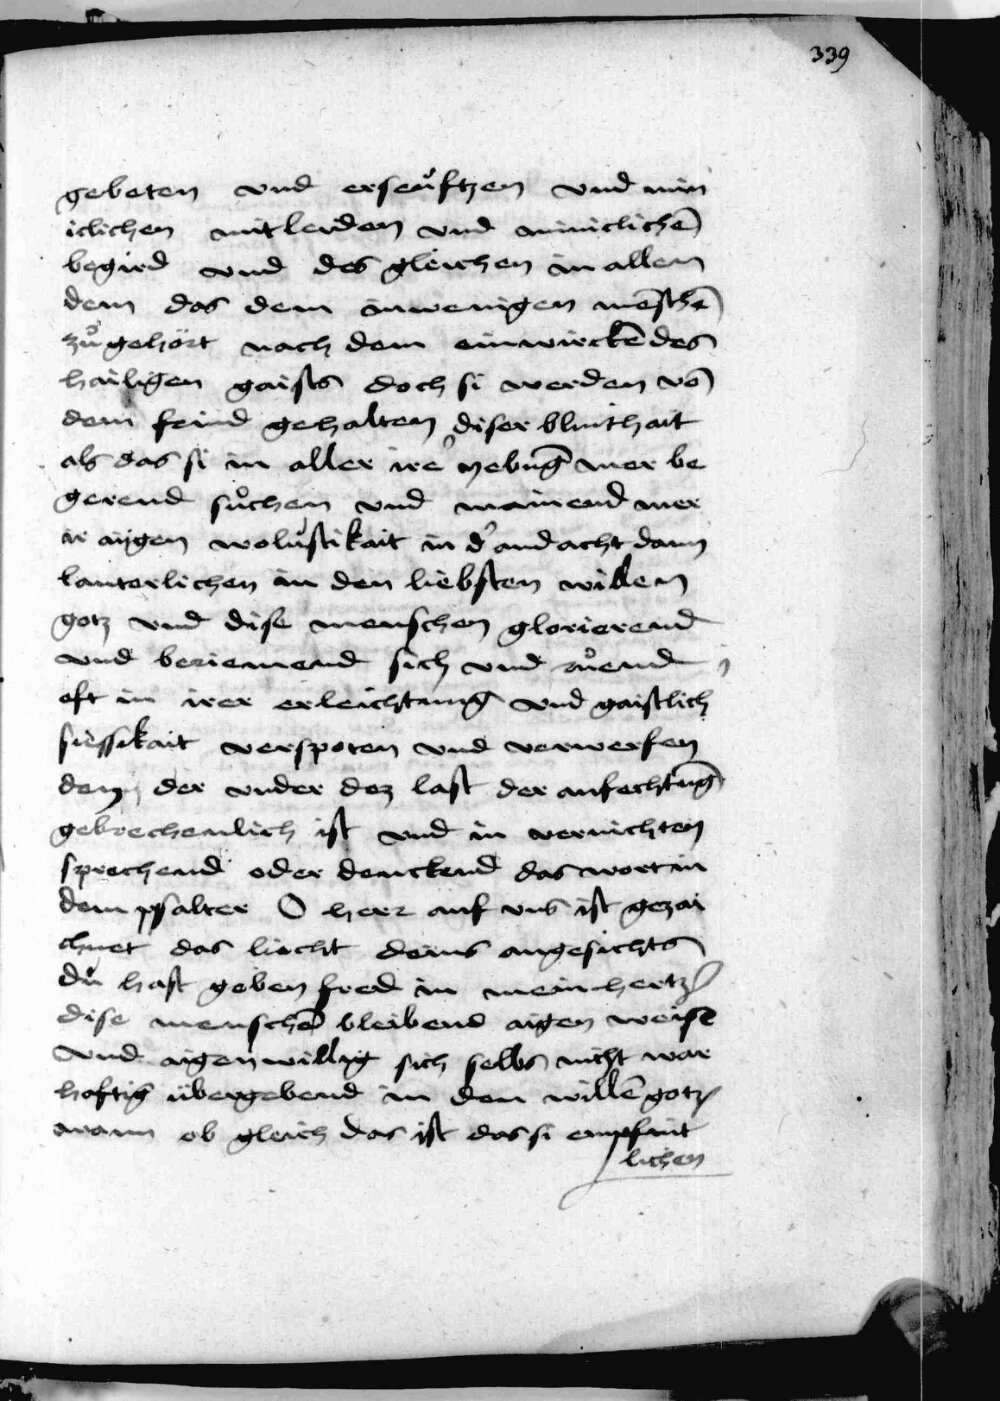 339
gebeten vnd erseúftzen vnd min
iclichen mitleiden vnd miniclichē
begird vnd des gleichen in allem
dem das dem inwenigen mēschē
zů gehört nach dem einwirckē des
hailigen gaists doch si werden vō
dem feind gehalten diser blinthait
als das si in aller irer yebūg mer be
gerend sůchen vnd mainend mer
ir aygen wolústikait in d' andacht dann
lauterlichen in den liebsten willen
gotz vnd dise menschen glorierend
vnd beriemend sich vnd růend
oft in irer erleichtung vnd gaistlich
siessikait verspoten vnd verwerfen
den der vnder dez last der anfechtūg
gebrechenlich ist vnd in vernichten
sprechend oder denckend das wort in
dem psalter O herr auf vns ist gezai
chnet das liecht deins angesichts
dů hast geben fred in mein hertz
dise menschē bleibend aigen weise
vnd aigenwillig sich selbs nicht war
haftig übergebend in den willē gotz
wann ob gleich das ist das si empfint
lichen